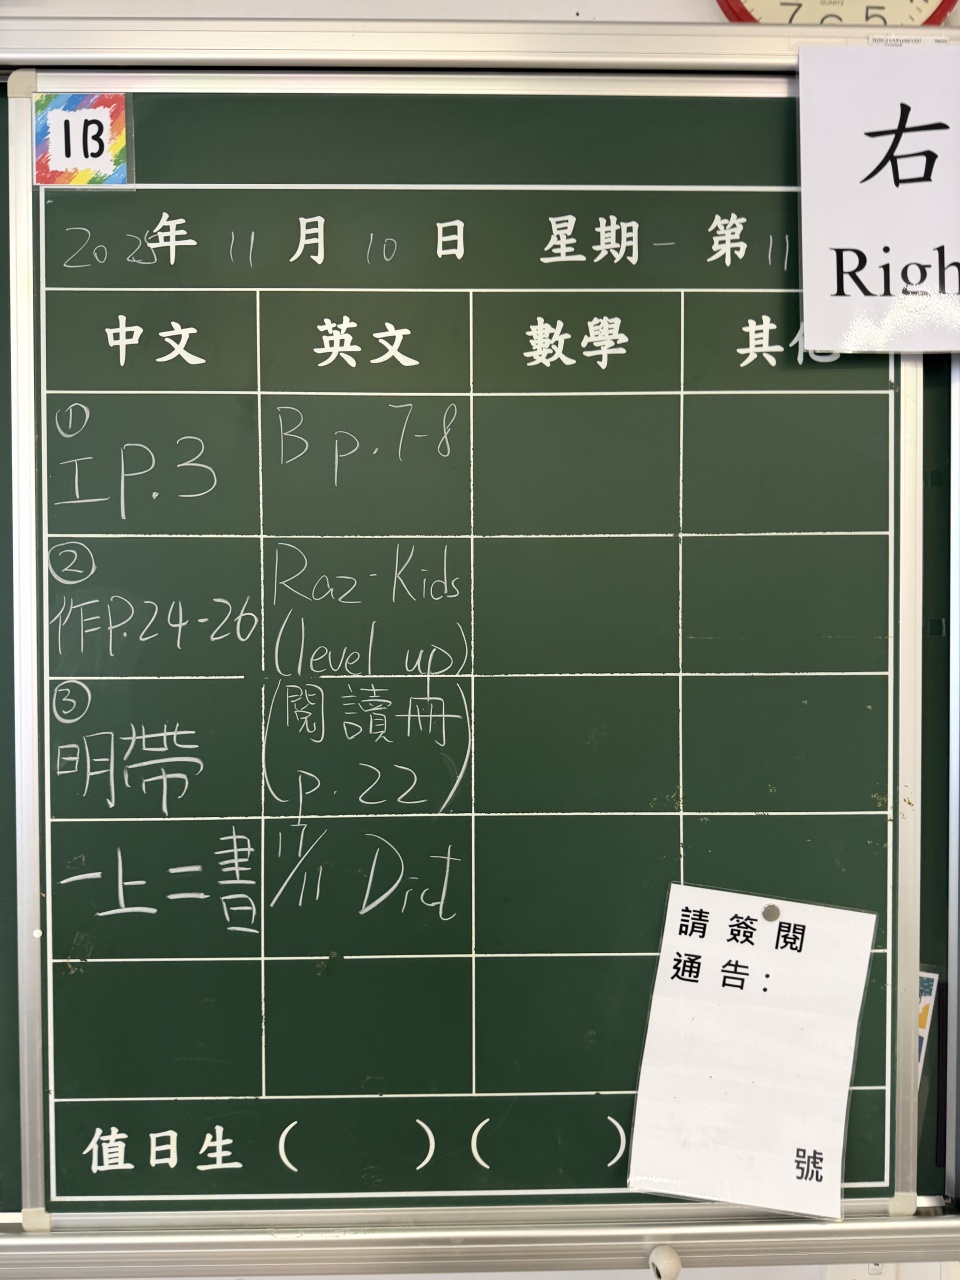 QUARTY
7 6 5
1B
右
Righ
2025年 11月 10日 星期一 第11
中文 英文 數學 其他
①
工 P.3
B p.7-8
②
作P.24-26
Raz-Kids
(level up)
③
明帶
(閱讀冊
p.22)
一上二書
17/11 Dict
請簽閱
通告:
號
值日生 ( ) ( )